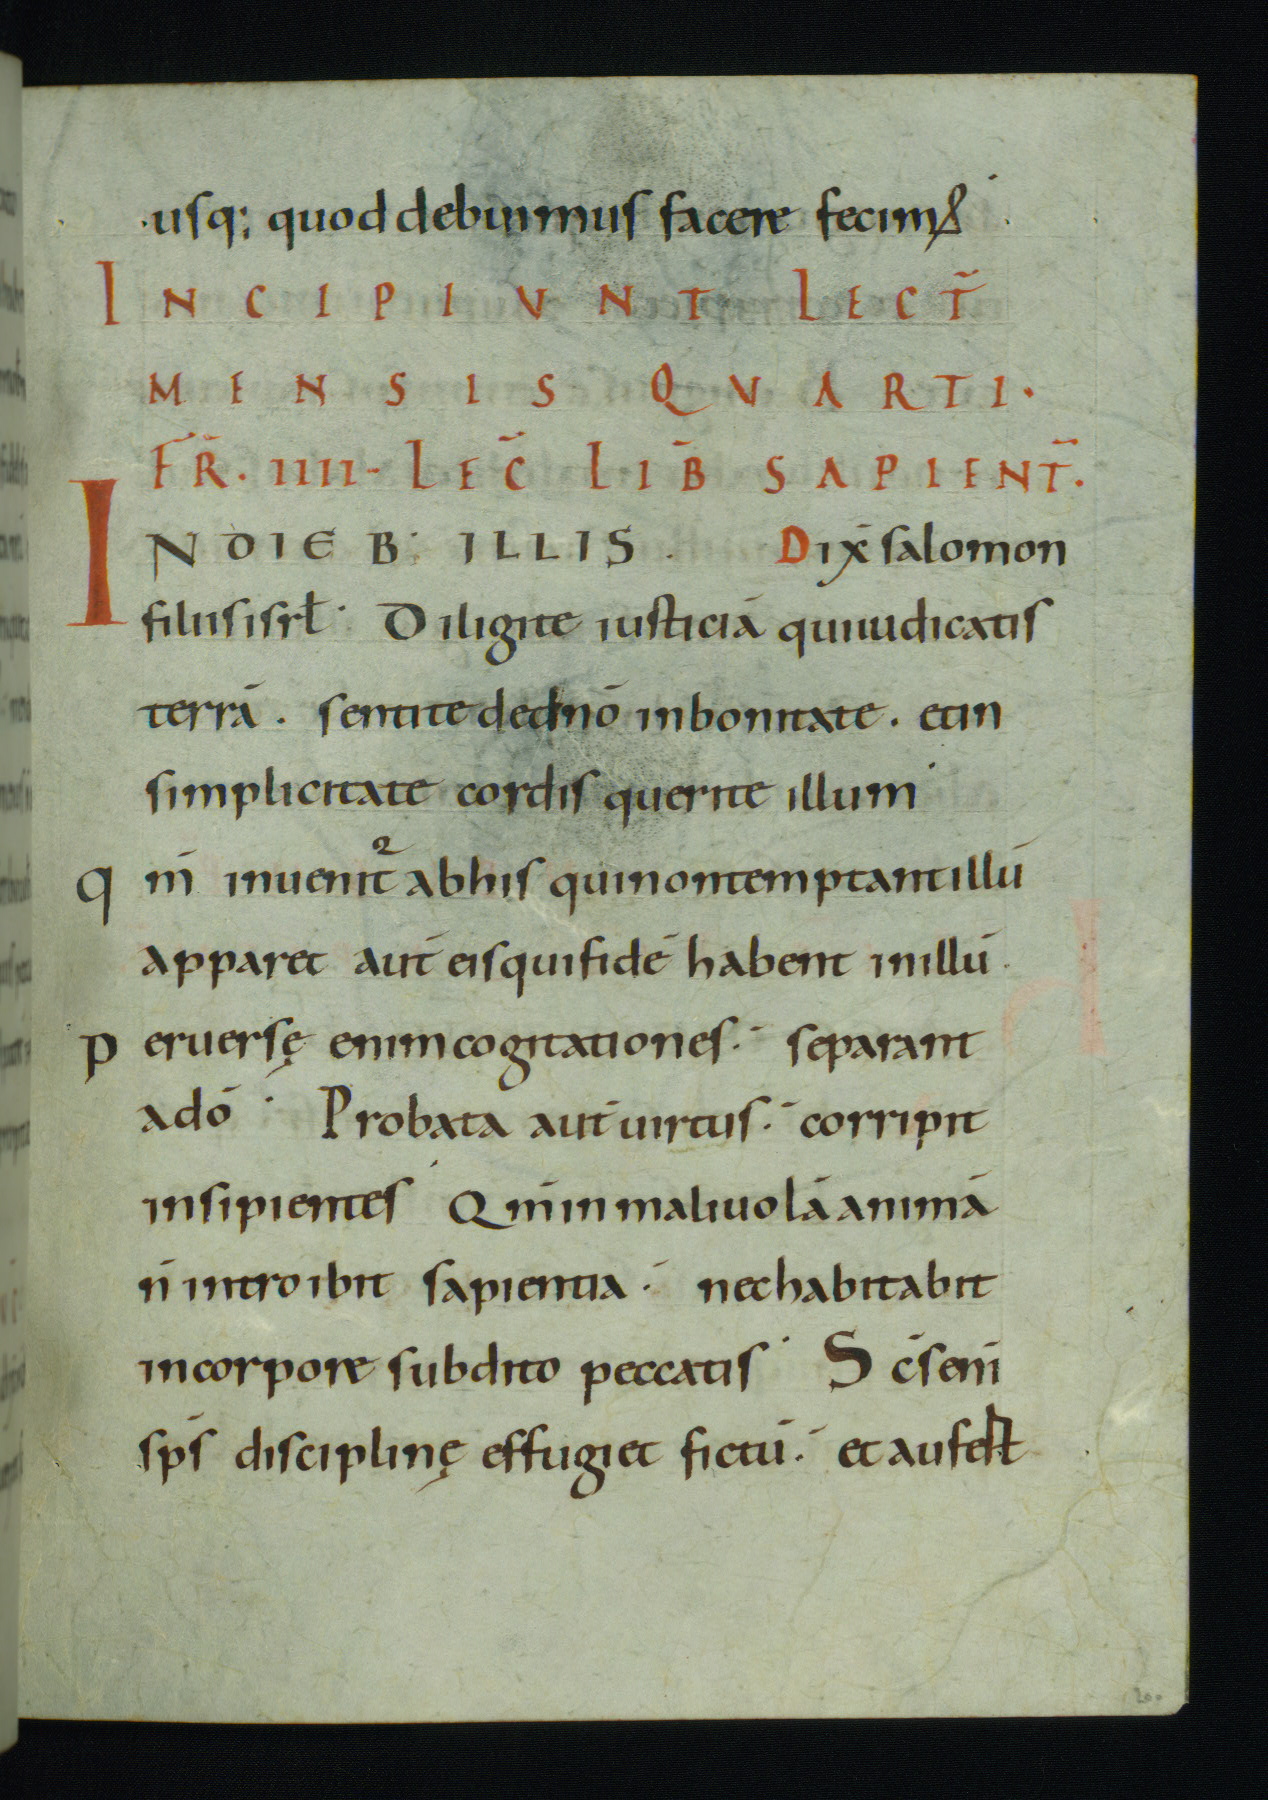 usq; quod debuimus facere fecimus
INCIPIUNT LECT̄
MENSIS QUARTI.
FR̄. IIII. LEC̄ LIB̄ SAPIENT̄.
IN DIEB: ILLIS. Dix̄ salomon
filius isrł. Diligite iusticiā qui iudicatis
terrā. sentite de dnō in bonitate. et in
simplicitate cordis querite illum
qm̄ inuenit᷑ ab his qui non temptant illū
apparet aut̄ eis qui fidē habent in illū.
peruersę enim cogitationes. separant
a dō. Probata aut̄ uirtus. corripit
insipientes Qm̄ in maliuolā animā
n̄ introibit sapientia. nec habitabit
in corpore subdito peccatis. Sc̄s eni
sps̄ disciplinę effugiet fictū. et aufert